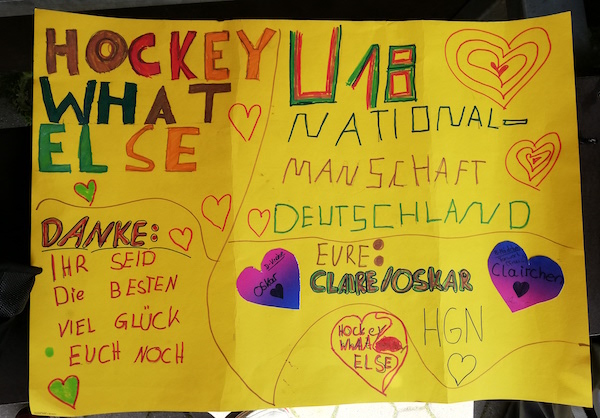 HOCKEY
WHAT
ELSE
U18
NATIONAL-
MANSCHAFT
DEUTSCHLAND
DANKE:
IHR SEID
DIE BESTEN
VIEL GLÜCK
EUCH NOCH
EURE:
CLAIRE/OSKAR
Oskar
Clairchen
HGN
HOCKEY
WHAT
ELSE